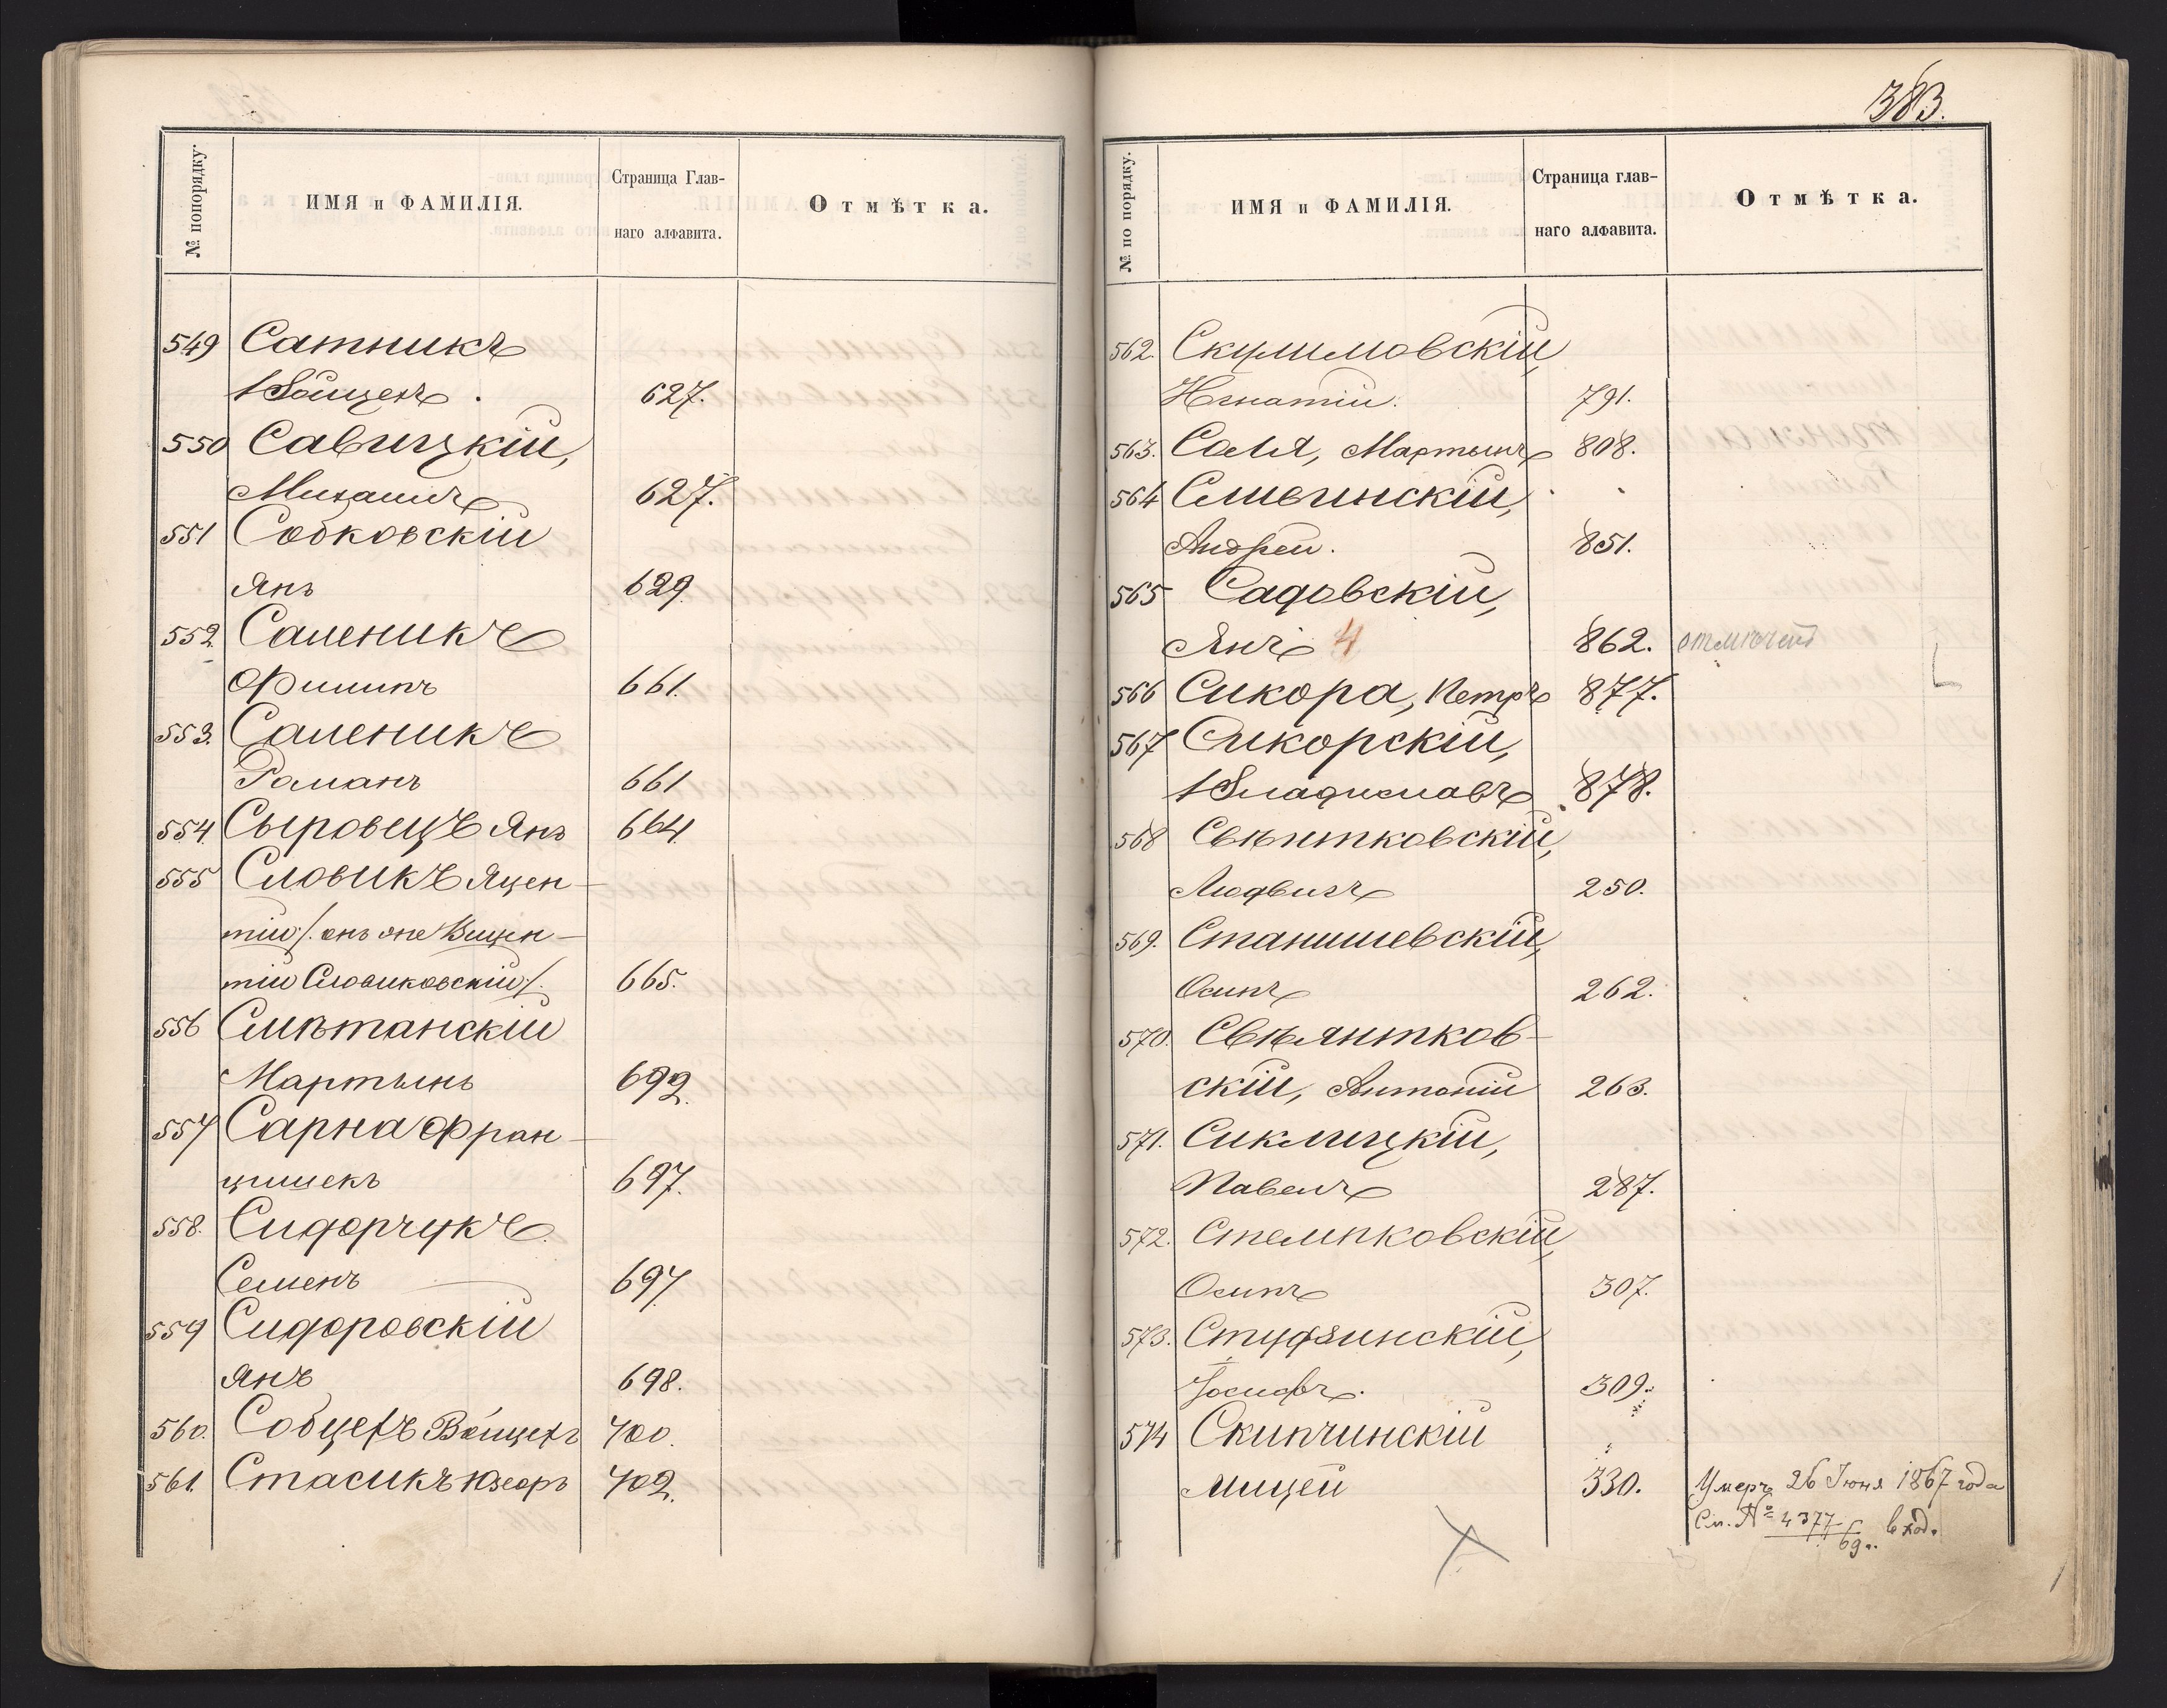 383.
№ попорядку. ИМЯ и ФАМИЛІЯ. Страница Глав-наго алфавита. Отмѣтка.
549 Сатникъ
Войцехъ. 627.
550 Савицкій,
Михаилъ 627.
551 Собковскій
Янъ 629.
552. Саленикъ
Филипъ 661.
553. Саленикъ
Романъ 661
554. Сыровецъ Янъ 664.
555 Словикъ Яцен-
тій /. онъ же Вицен-
тій Словиковскій /. 665.
556 Смѣтанскій
Мартынъ 692.
557 Сарна Фран-
цишекъ 697.
558. Сидорчукъ
Семенъ 697.
559 Сидоровскій
Янъ 698.
560. Собцехъ Войцехъ 700.
561. Стасикъ Юзефъ 702.
№ по порядку. ИМЯ и ФАМИЛІЯ. Страница глав-наго алфавита. Отмѣтка.
562. Скулимовскій,
Игнатій. 791.
563. Соля, Мартынъ 808.
564 Сливинскій,
Андрей. 851.
565 Садовскій,
Янъ 4 862. отмѣченъ
566 Сикора, Петръ 877.
567 Сикорскій,
Владиславъ 878.
568 Свѣнтковскій,
Людвигъ 250.
569. Станишевскій,
Осипъ 262.
570. Свѣянтков-
скій, Антоній 263.
571. Сиклицкій,
Павелъ 287.
572. Стемпковскій,
Осипъ 307.
573. Студзинскій,
Іосифъ. 309.
574 Скипчинскій
330. Умеръ 26 Іюня 1867 года
См. № 4377/69 г. вход.